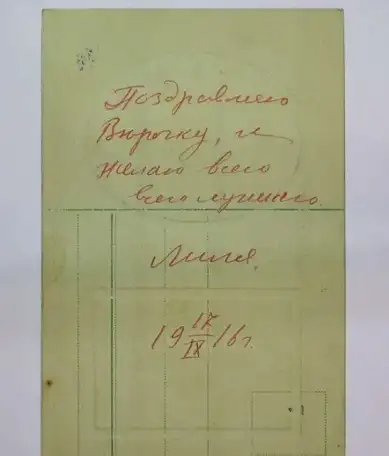 Поздравляю
Вѣрочку, и
желаю всего
всего лучшаго
Лиля.
19 17/IX 16 г.